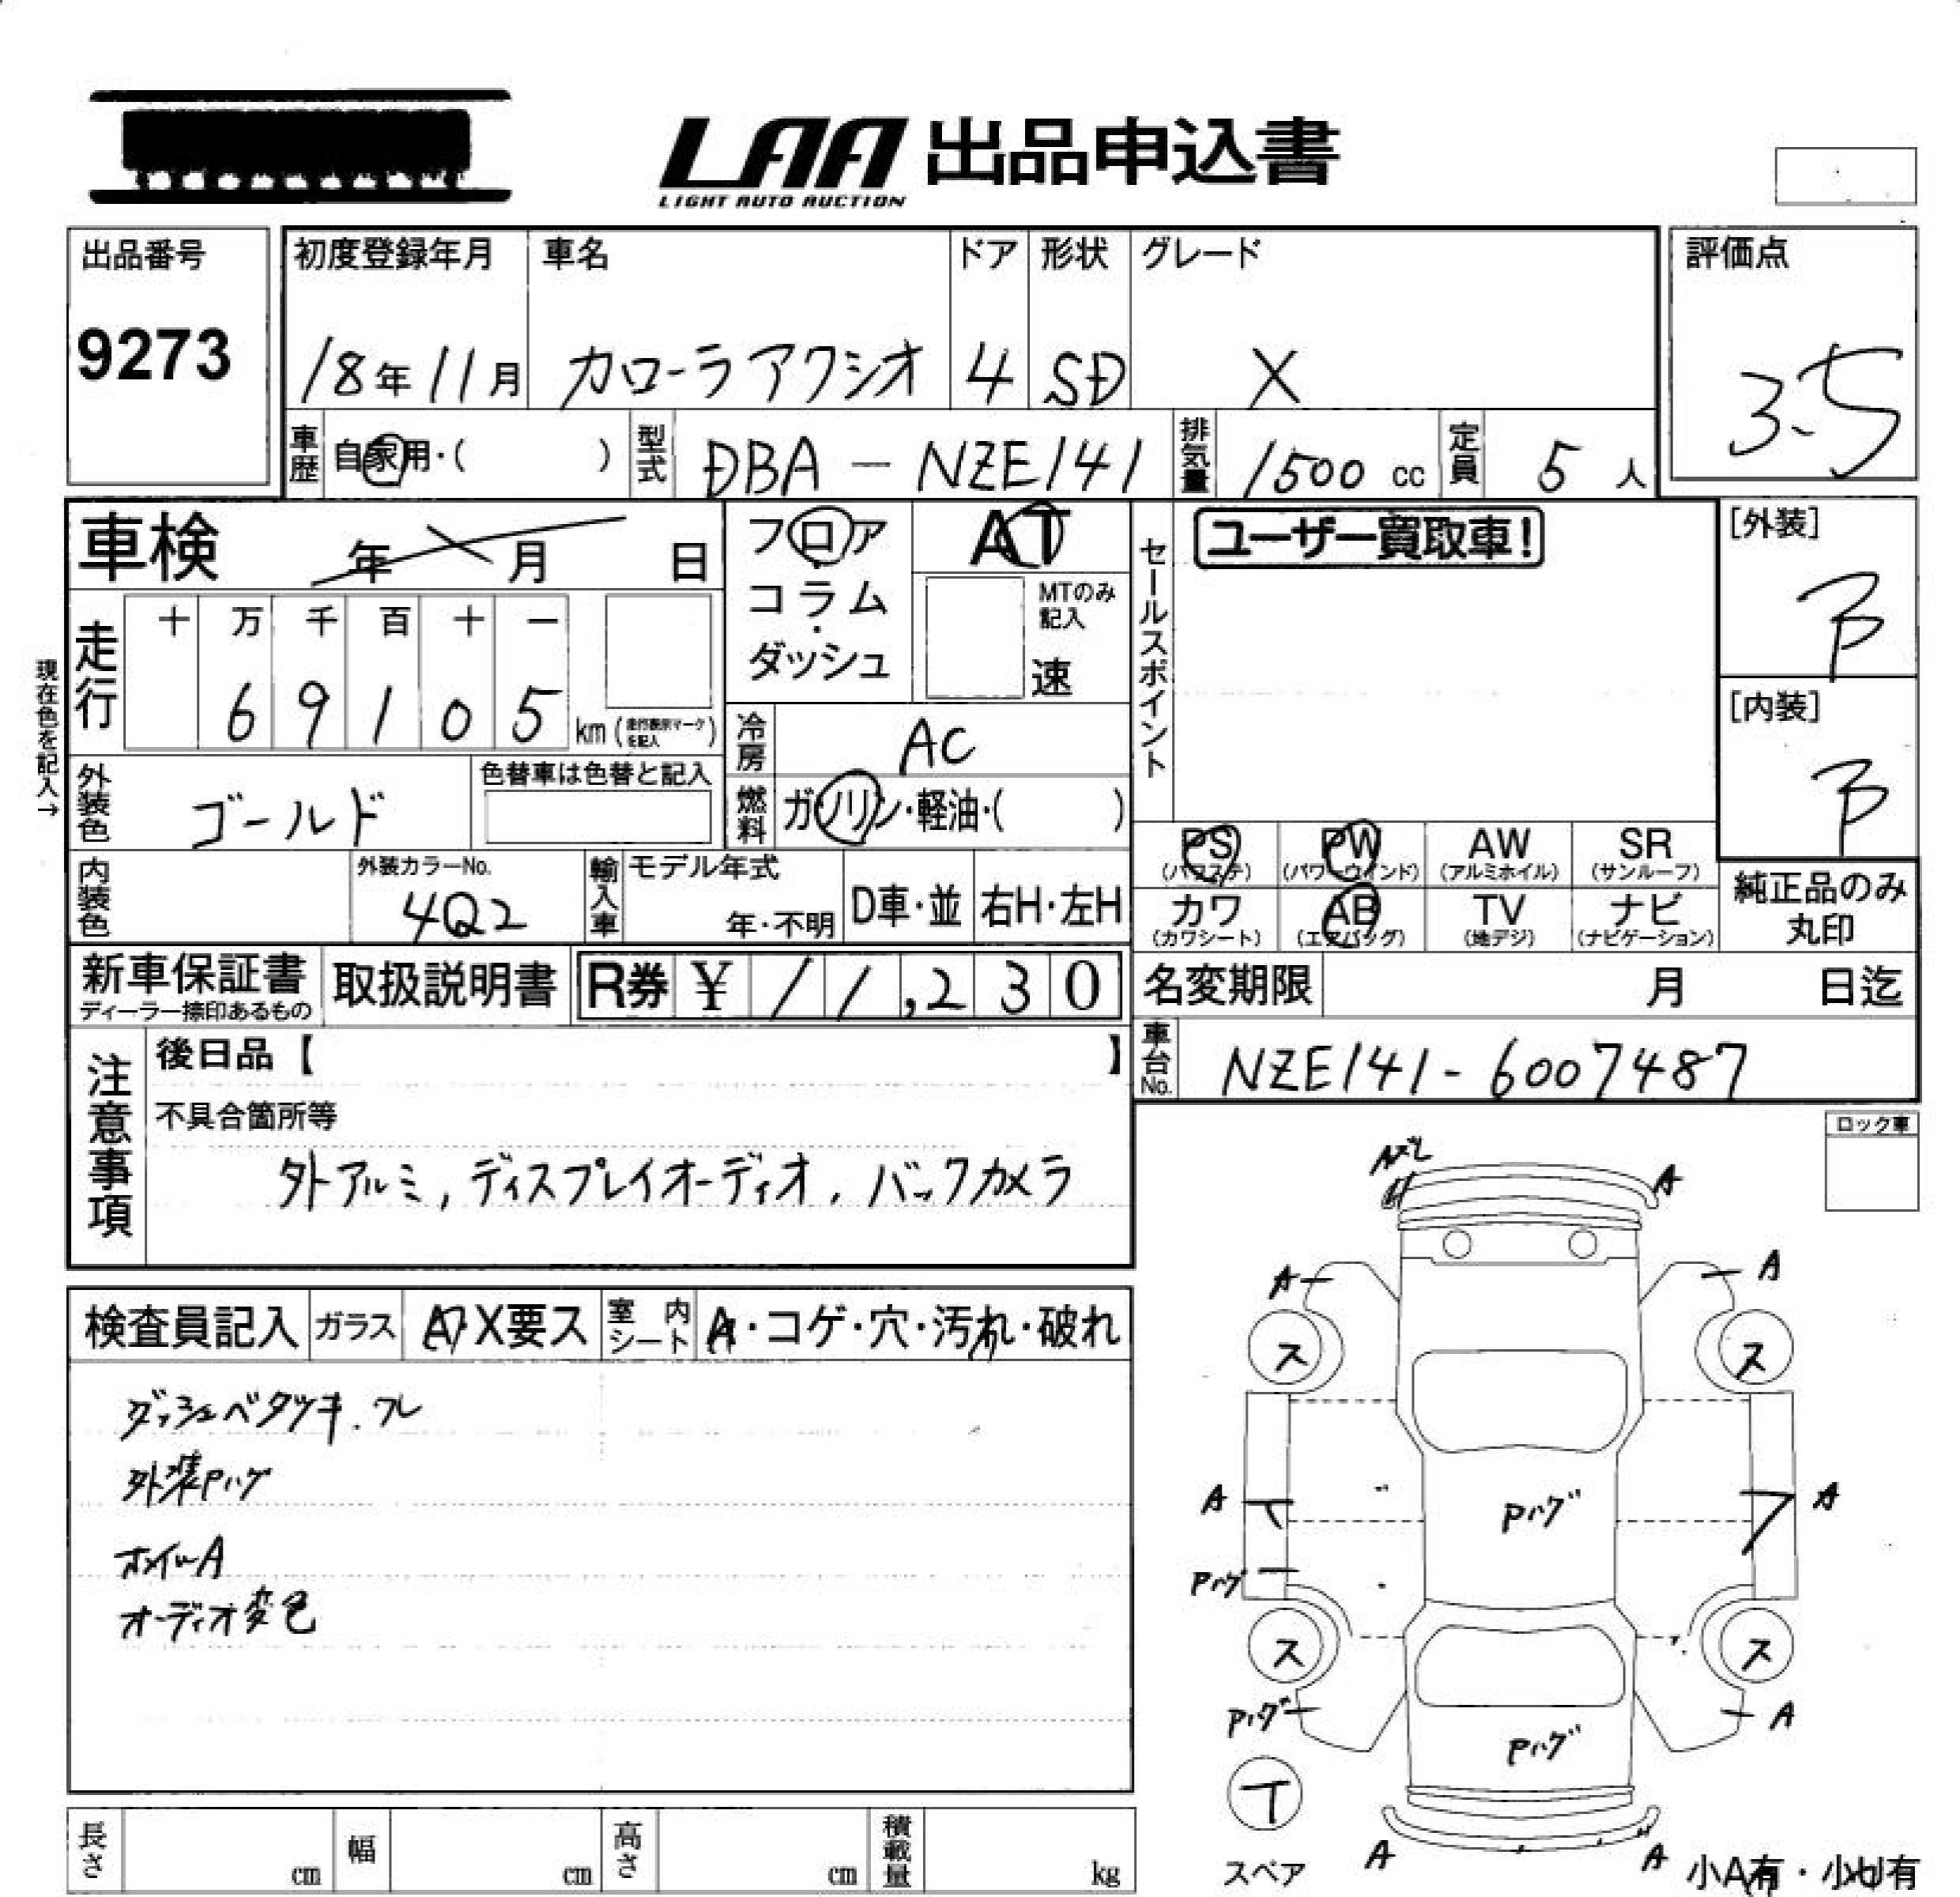 LAA 出品申込書
LIGHT AUTO AUCTION
出品番号
9273
初度登録年月
18年11月
車名
カローラアクシオ
ドア
4
形状
SD
グレード
X
評価点
3.5
車歴 自家用・( )
型式 DBA - NZE141
排気量 1500 cc
定員 5 人
車検 年 月 日
フロア・コラム・ダッシュ
AT
MTのみ記入
速
セールスポイント
ユーザー買取車!
[外装]
B
[内装]
B
現在色を記入→
走行
十 万 千 百 十 一
6 9 1 0 5 km (走行表示マークを記入)
冷房 AC
燃料 ガソリン・軽油・( )
外装色 ゴールド
色替車は色替と記入
内装色
外装カラーNo.
4Q2
輸入車
モデル年式
年・不明
D車・並
右H・左H
PS (パワステ)
PW (パワーウインド)
AW (アルミホイル)
SR (サンルーフ)
カワ (カワシート)
AB (エアバッグ)
TV (地デジ)
ナビ (ナビゲーション)
純正品のみ丸印
新車保証書
ディーラー捺印あるもの
取扱説明書
R券 ¥ 11,230
名変期限 月 日迄
車台No. NZE141-6007487
注意事項
後日品【 】
不具合箇所等
外アルミ, ディスプレイオーディオ, バックカメラ
ロック車
検査員記入
ガラス A・X要ス
室内シート A・コゲ・穴・汚れ・破れ
ダッシュベタツキ.ワレ
外装Pハゲ
ホイルA
オーディオ変色
A
A
A
ス
ス
A
A
Pハゲ
Pハゲ
ス
ス
Pハゲ
A
Pハゲ
T
スペア
A
A
小A有・小U有
長さ cm
幅 cm
高さ cm
積載量 kg